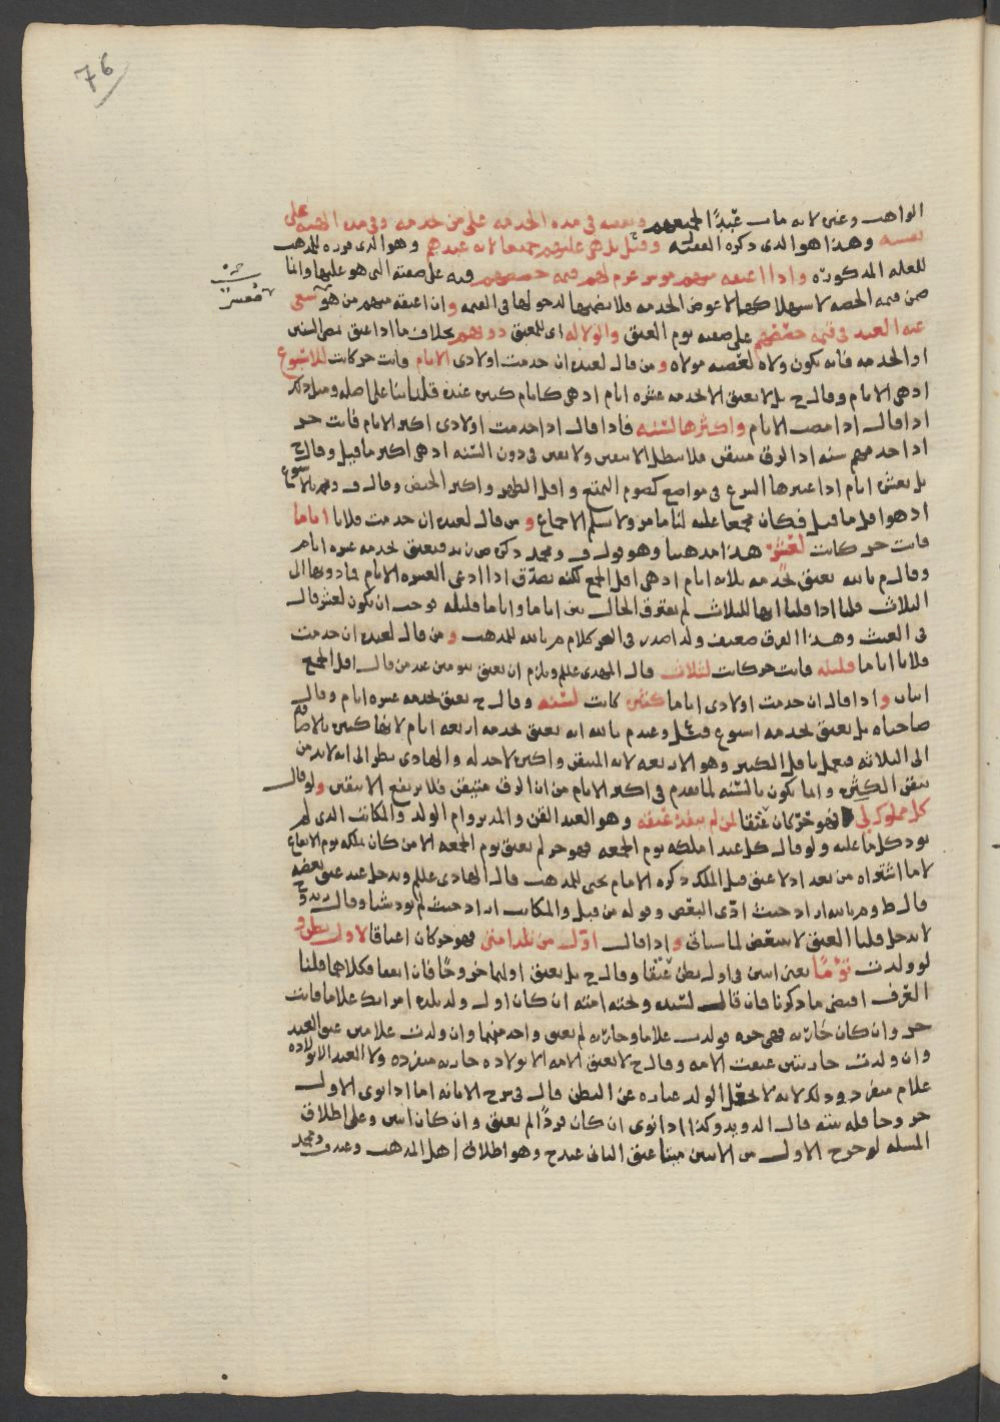 76
الواهب وغنى لانه مات عبدًا لجميعهم ونفقته فى مده الخدمه على من خدمه وفى مده المهنه على
نفسه وهذا هو الذى ذكره الفقيه وقيل بل هى عليهم جميعا لانه عبدهم وهو الذى قرره للمذهب
للعله المذكوره واذا اعتقه منهم موسر غرم لهم قيمه حصصهم فيه على صفته التى هو عليها وانما
ضمن قيمه الحصه لا عوض الخدمه فلا يضمنها لدخولها فى القيمه وان اعتقه منهم من هو سعى
عنه العبد فى قيمه حصصهم على صفته يوم العتق والولا له اى للمعتق دونهم بخلاف ما اذا عتق بمضى السنين
او الخدمه فانه يكون ولاه لعصبه مولاه ومن قال لعبده ان خدمت اولادى الايام فانت حر كانت للاسبوع
اذ هى الايام وقال ح بل لا يعتق الا بخدمه عشره ايام اذ هى كايام كثيره عنده قلنا بنا على اصله ومثل ذلك
اذا قال اذا مضت الايام واكثرها لسنه فاذا قال اذا خدمت اولادى اكثر الايام فانت حر
اذا خدمهم سنه اذ الرق متيقن فلا يبطل الا بيقين ولا يقين فى دون السنه اذ هى اكثر ما قيل وقال ح
بل بعشره ايام اذ اعتبرها الشرع فى مواضع كصوم التمتع واقل الطهر واكثر الحيض وقال ف ومحمد بالاسبوع
اذ هو اقل ما قيل فكان مجمعا عليه لنا ما مر ولا نسلم الاجماع و من قال لعبده ان خدمت فلانا اياما
فانت حر كانت لعشر هذا مذهبنا وهو قول ف ومحمد ذكره ص زيد فيعتق بخدمه عشره ايام
وقال م بالله يعتق بخدمه ثلاثه ايام اذ هى اقل الجمع لكنه يصدق اذا ادعى العشره الايام فما دونها الى
الثلاث قلنا اذا قلنا انها للثلاث لم يفترق الحال بين اياما واياما قليله فوجب ان يكون لعشر قال
فى الغيث وهذا الفرق ضعيف ولذا صدر فى البحر كلام م بالله للمذهب ومن قال لعبده ان خدمت
فلانا اياما قليله فانت حر كانت لثلاث قال المهدى علىلم ويلزم ان يعتق بيومين عند من قال اقل الجمع
اثنان واذا قال ان خدمت اولادى اياما كثيره كانت لسنه وقال ح يعتق بخدمه عشره ايام وقال
صاحباه بل يعتق بخدمه اسبوع وعند م بالله انه يعتق بخدمه اربعه ايام لانها كثيره بالاضافه
الى الثلاثه فيعمل باقل الكثير وهو الاربعه لانه المتيقن واكثره لا حد له والهادى نظر الى انه لا بد من
تيقن الكثره وانما يكون بالسنه لما تقدم فى اكثر الايام من ان الرق متيقن فلا يرتفع الا بيقين ولو قال
كل مملوك لى فهو حر كان عتقا لمن لم ينفذ عتقه وهو العبد القن والمدبر وام الولد والمكاتب الذى لم
يود كل ما عليه ولو قال كل عبد املكه يوم الجمعه فهو حر لم يعتق يوم الجمعه الا من كان يملكه يوم الايقاع
لا ما اشتراه من بعد اذ لا عتق قبل الملك ذكره الامام يحيى للمذهب قال الهادى علىلم ويدخل عبد عتق بعضه
قال ط وم بالله اراد حيث ادى البعض وقوله من قبل والمكاتب اراد حيث لم يود شيا وقال
لا يدخل قلنا العتق لا يتبعض لما سياتى واذا قال اول من تلد امتى فهو حر كان اعتاقا لاول بطن و
لو ولدت تؤمًا يعنى اثنين فى اول بطن عتقا وقال ح بل يعتق اولهما خروجًا فان اتفقا فكلاهما قلنا
العرف اقتضى ما ذكرنا فان قال لسيده ولحته امته ان كان اول ولد تلده امراتك غلاما فانت
حر وان كان جاريه فهى حره فولدت غلاما وجاريه لم يعتق واحد منهما وان ولدت غلامين عتق العبد
وان ولدت جاريتين عتقت الامه وقال ح لا يعتق الامه الا بولاده جاريه منفرده ولا العبد الا بولاده
غلام منفرد وذلك لانه لا يجعل الولد عباره عن البطن قال فى شرح الابانه اما اذا نوى الاول
خروجا فله نيته قال الدويد وكذا اذا نوى ان كان فردًا لم يعتق وان كان اثنين وعلى اطلاق
المسله لو خرج الاول من الاثنين ميتا عتق الثانى عند ح وهو اطلاق اهل المذهب وعند ف ومحمد